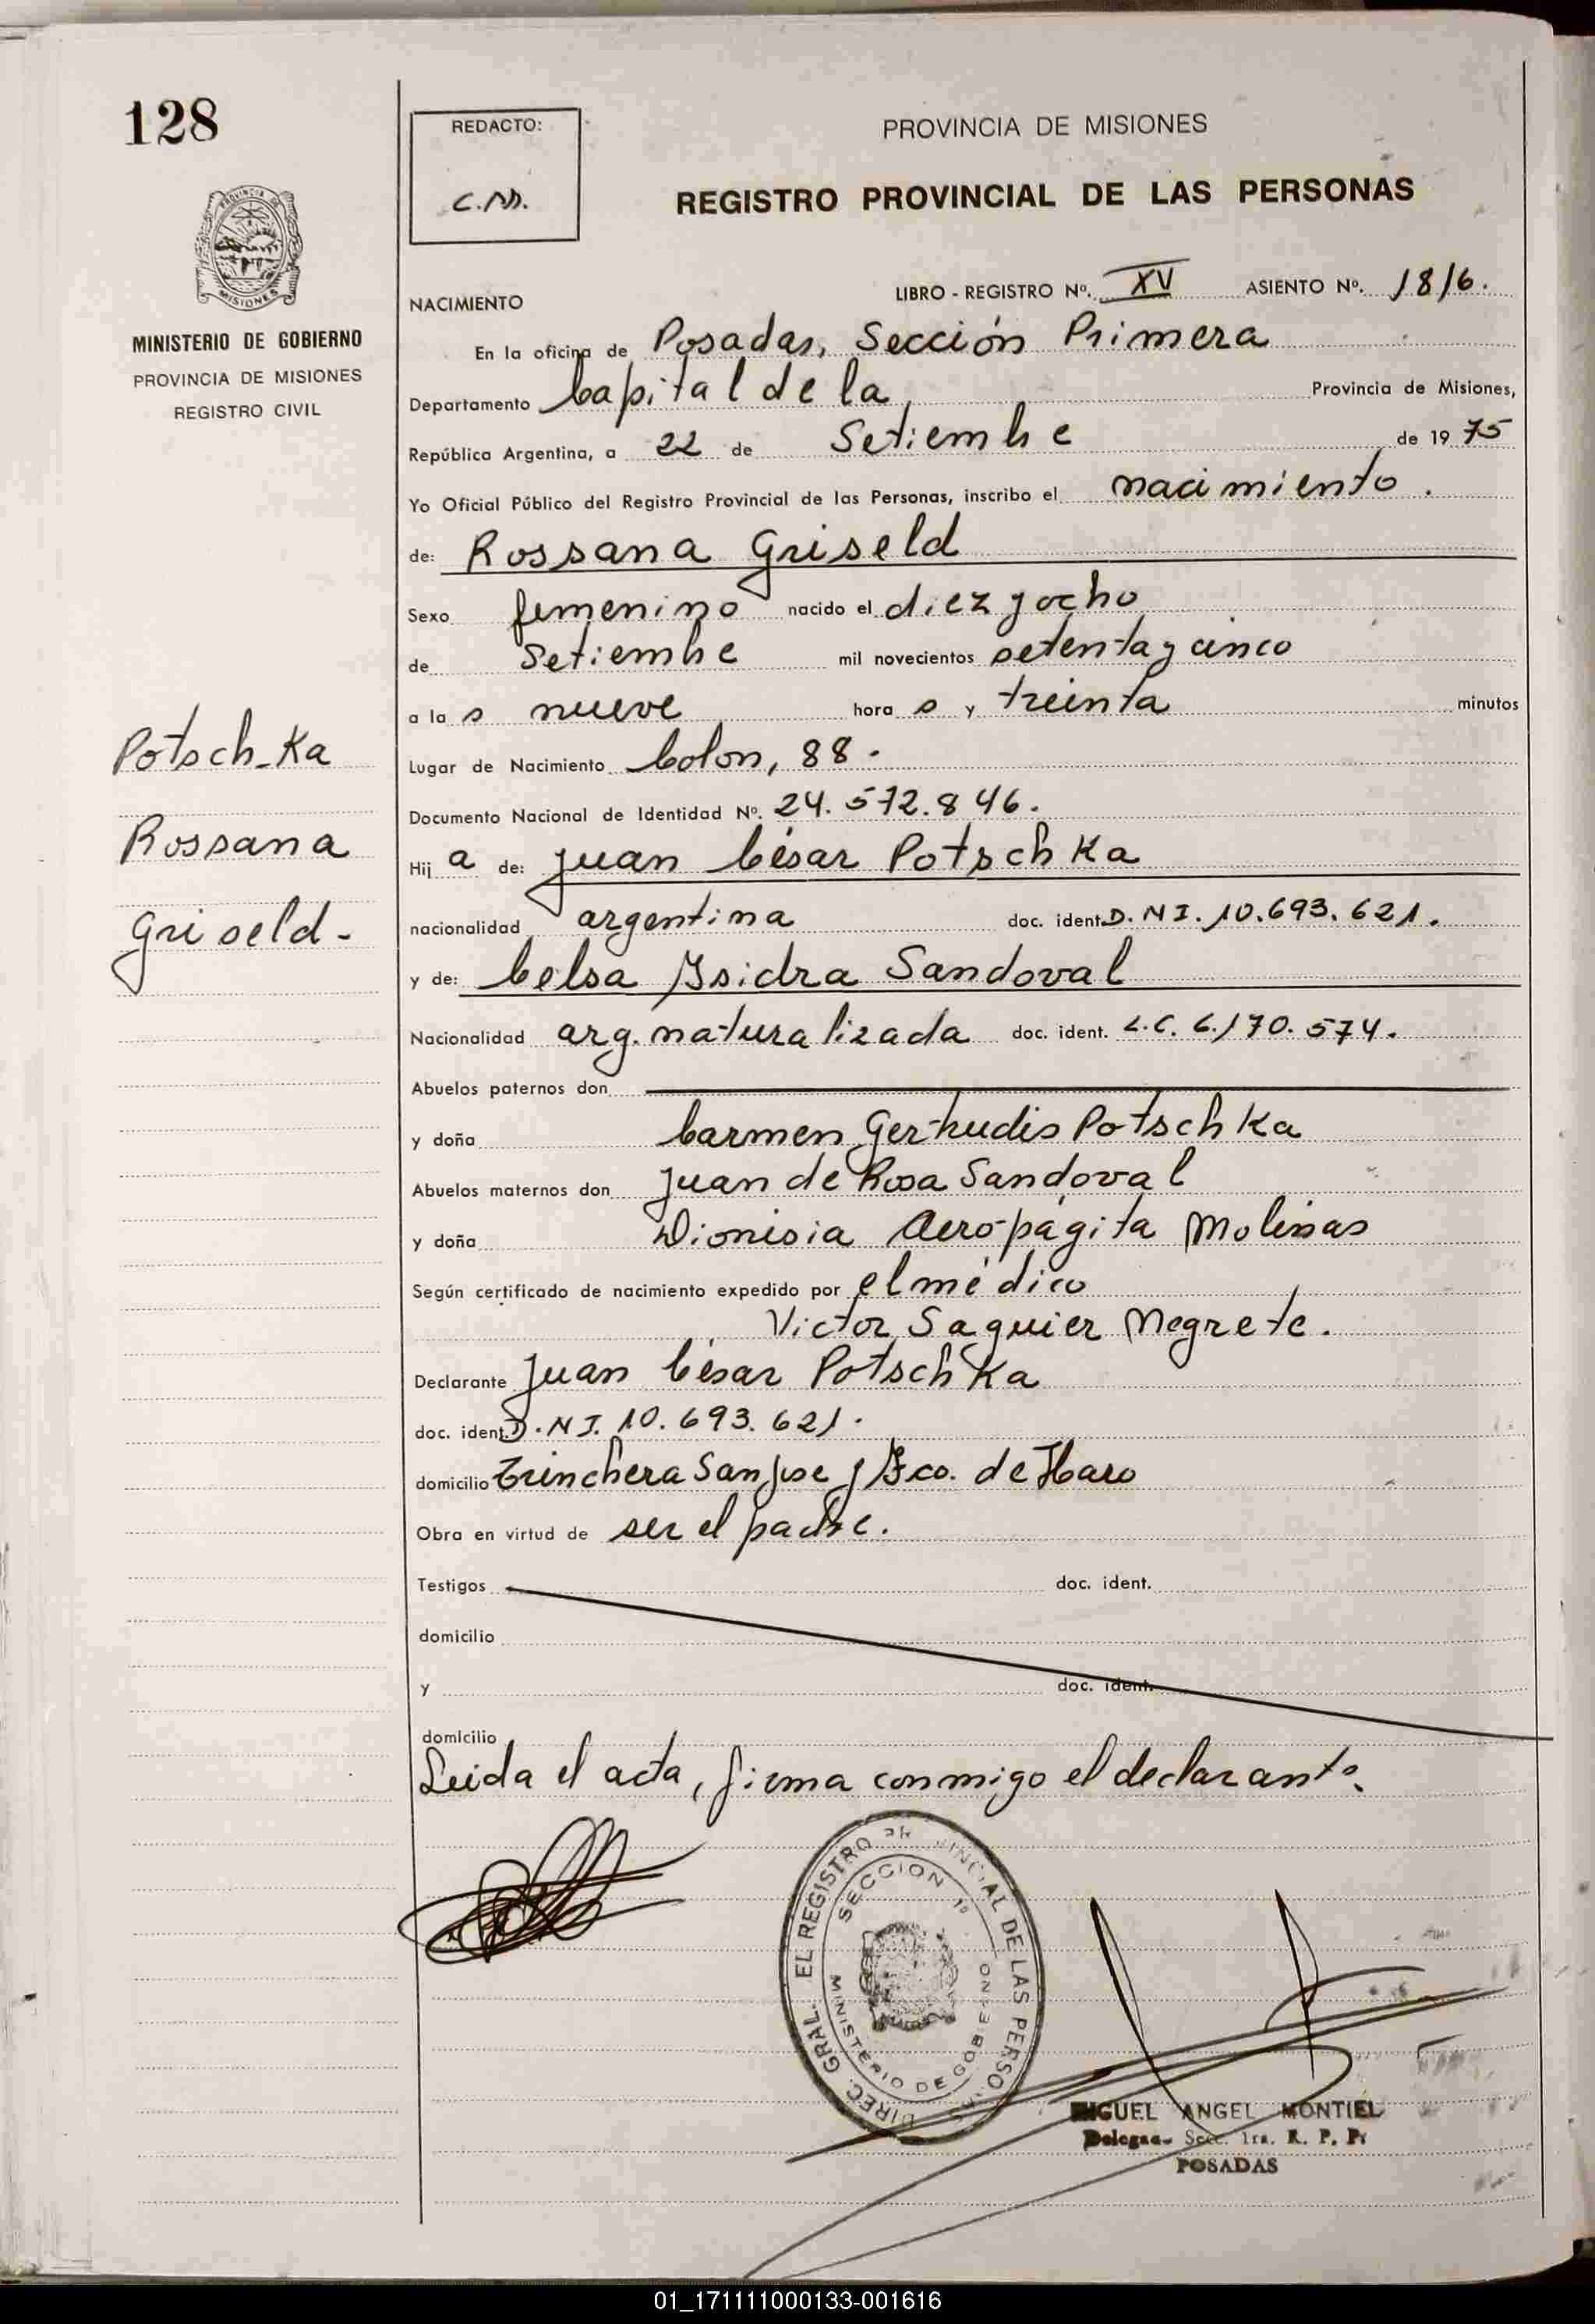 128
REDACTO:
C.M.
PROVINCIA DE MISIONES
REGISTRO PROVINCIAL DE LAS PERSONAS
MISIONES
MINISTERIO DE GOBIERNO
PROVINCIA DE MISIONES
REGISTRO CIVIL
NACIMIENTO
LIBRO - REGISTRO Nº. XV ASIENTO Nº. 1816.
En la oficina de Posadas, Sección Primera
Departamento Capital de la Provincia de Misiones,
República Argentina, a 22 de Setiembre de 1975
Yo Oficial Público del Registro Provincial de las Personas, inscribo el nacimiento.
de: Rossana Griseld
Sexo femenino nacido el diez y ocho
de Setiembre mil novecientos setenta y cinco
a la s nueve hora s y treinta minutos
Lugar de Nacimiento Colon, 88.
Documento Nacional de Identidad Nº. 24.572.846.
Hij a de: Juan César Potschka
nacionalidad argentina doc. ident. D.N I. 10.693.621.
y de: Celsa Ysidra Sandoval
Nacionalidad arg. naturalizada doc. ident. L.C. 6.170.574.
Abuelos paternos don
y doña Carmen Gertrudis Potschka
Abuelos maternos don Juan de Rosa Sandoval
y doña Dionisia Aeropágita Molinas
Según certificado de nacimiento expedido por el médico
Victor Saguier Negrete.
Declarante Juan César Potschka
doc. ident. D.N I. 10.693.621.
domicilio Trinchera San Jose y Fco. de Haro
Obra en virtud de ser el padre.
Testigos doc. ident.
domicilio
y doc. ident.
domicilio
Leida el acta, firma conmigo el declarante.
Potsch-Ka
Rossana
Griseld-
DIREC. GRAL. EL REGISTRO PROVINCIAL DE LAS PERSONAS
SECCION 1º
MINISTERIO DE GOBIERNO
MIGUEL ANGEL MONTIEL
Delegado Secc. 1ra. R. P. P.
POSADAS
01_171111000133-001616